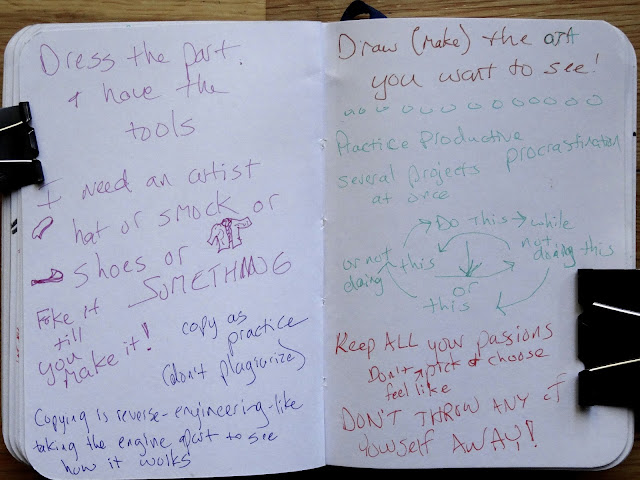 Dress the part.
& have the
tools
I need an artist
hat or smock or
shoes or
SOMETHING
Fake it
till
you
make it!
copy as
practice
(don't plagiarize)
Copying is reverse-engineering-like
taking the engine apart to see
how it works
Draw (make) the art
you want to see!
Practice Productive
procrastination
several projects
at once
Do This → while
not
doing this
or
this
or not
doing this
Keep ALL your passions
Don't pick & choose
feel like
DON'T THROW ANY OF
YOURSELF AWAY!